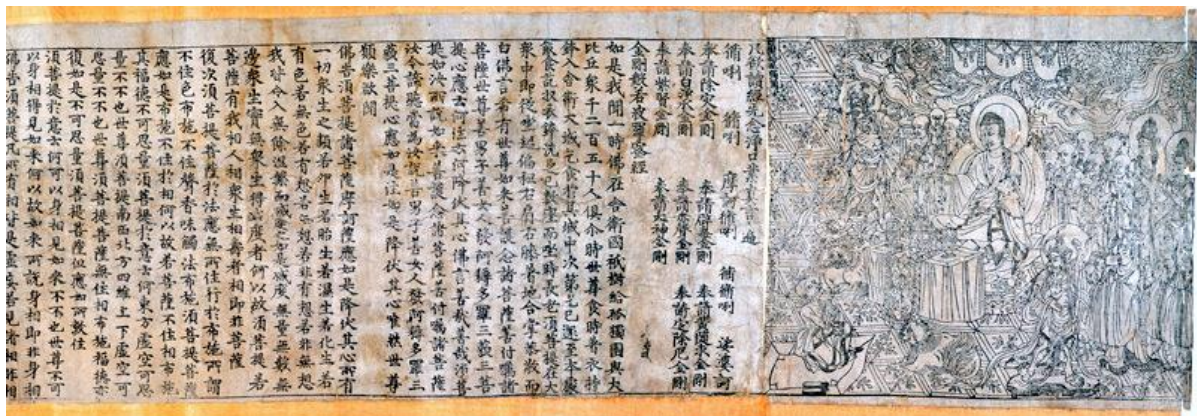 凡欲讀經先念淨口業真言一遍
脩唎 脩唎 摩訶脩唎 脩脩唎 娑婆訶
奉請除灾金剛 奉請辟毒金剛 奉請黃隨求金剛
奉請白淨水金剛 奉請赤聲金剛 奉請定除厄金剛
奉請紫賢金剛 奉請大神金剛
金剛般若波羅蜜經
如是我聞一時佛在舍衛國祇樹給孤獨園與大
比丘衆千二百五十人俱尒時世尊食時著衣持
鉢入舍衛大城乞食於其城中次第乞已還至本處
飯食訖收衣鉢洗足已敷座而坐時長老須菩提在大
衆中即從坐起偏袒右肩右膝著地合掌恭敬而
白佛言希有世尊如來善護念諸菩薩善付囑諸
菩薩世尊善男子善女人發阿耨多羅三藐三菩
提心應云何住云何降伏其心佛言善哉善哉須菩
提如汝所說如來善護念諸菩薩善付囑諸菩薩
汝今諦聽當為汝說善男子善女人發阿耨多羅三
藐三菩提心應如是住如是降伏其心唯然世尊
願樂欲聞
佛告須菩提諸菩薩摩訶薩應如是降伏其心所有
一切衆生之類若卵生若胎生若濕生若化生若
有色若無色若有想若無想若非有想若非無想
我皆令入無餘涅槃而滅度之如是滅度無量無數無
邊衆生實無衆生得滅度者何以故須菩提若
菩薩有我相人相衆生相壽者相即非菩薩
復次須菩提菩薩於法應無所住行於布施所謂
不住色布施不住聲香味觸法布施須菩提菩薩
應如是布施不住於相何以故若菩薩不住相布施
其福德不可思量須菩提於意云何東方虛空可思
量不不也世尊須菩提南西北方四維上下虛空可
思量不不也世尊須菩提菩薩無住相布施福德亦
復如是不可思量須菩提菩薩但應如所教住
須菩提於意云何可以身相見如來不不也世尊不可
以身相得見如來何以故如來所說身相即非身相
佛告須菩提凡所有相皆是虛妄若見諸相非相